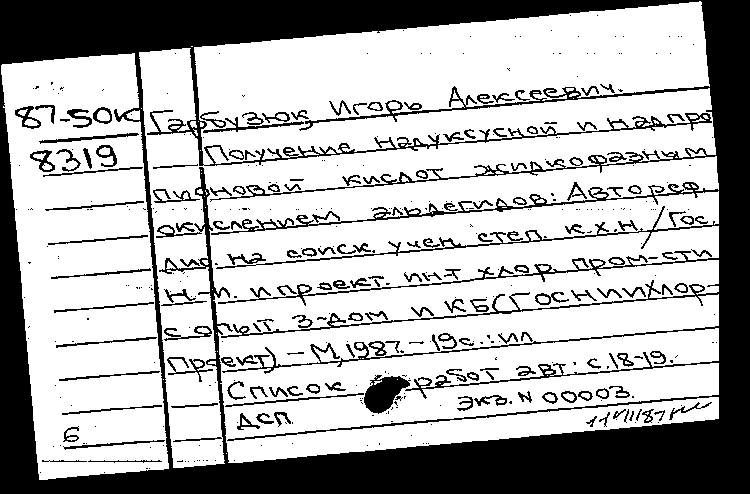 87-50К Гарбузюк, Игорь Алексеевич.
8319 Получение надуксусной и надпро
пионовой кислот жидкофазным
окислением альдегидов: Автореф.
дис. на соиск. учен. степ. к.х.н. / Гос.
н.-и. и проект. ин-т хлор. пром-сти
с опыт. з-дом и КБ (ГосНИИХлор-
Проект). - М, 1987. - 19с.: ил
Список работ авт: с.18-19.
ДСП Экз. N 00003.
6